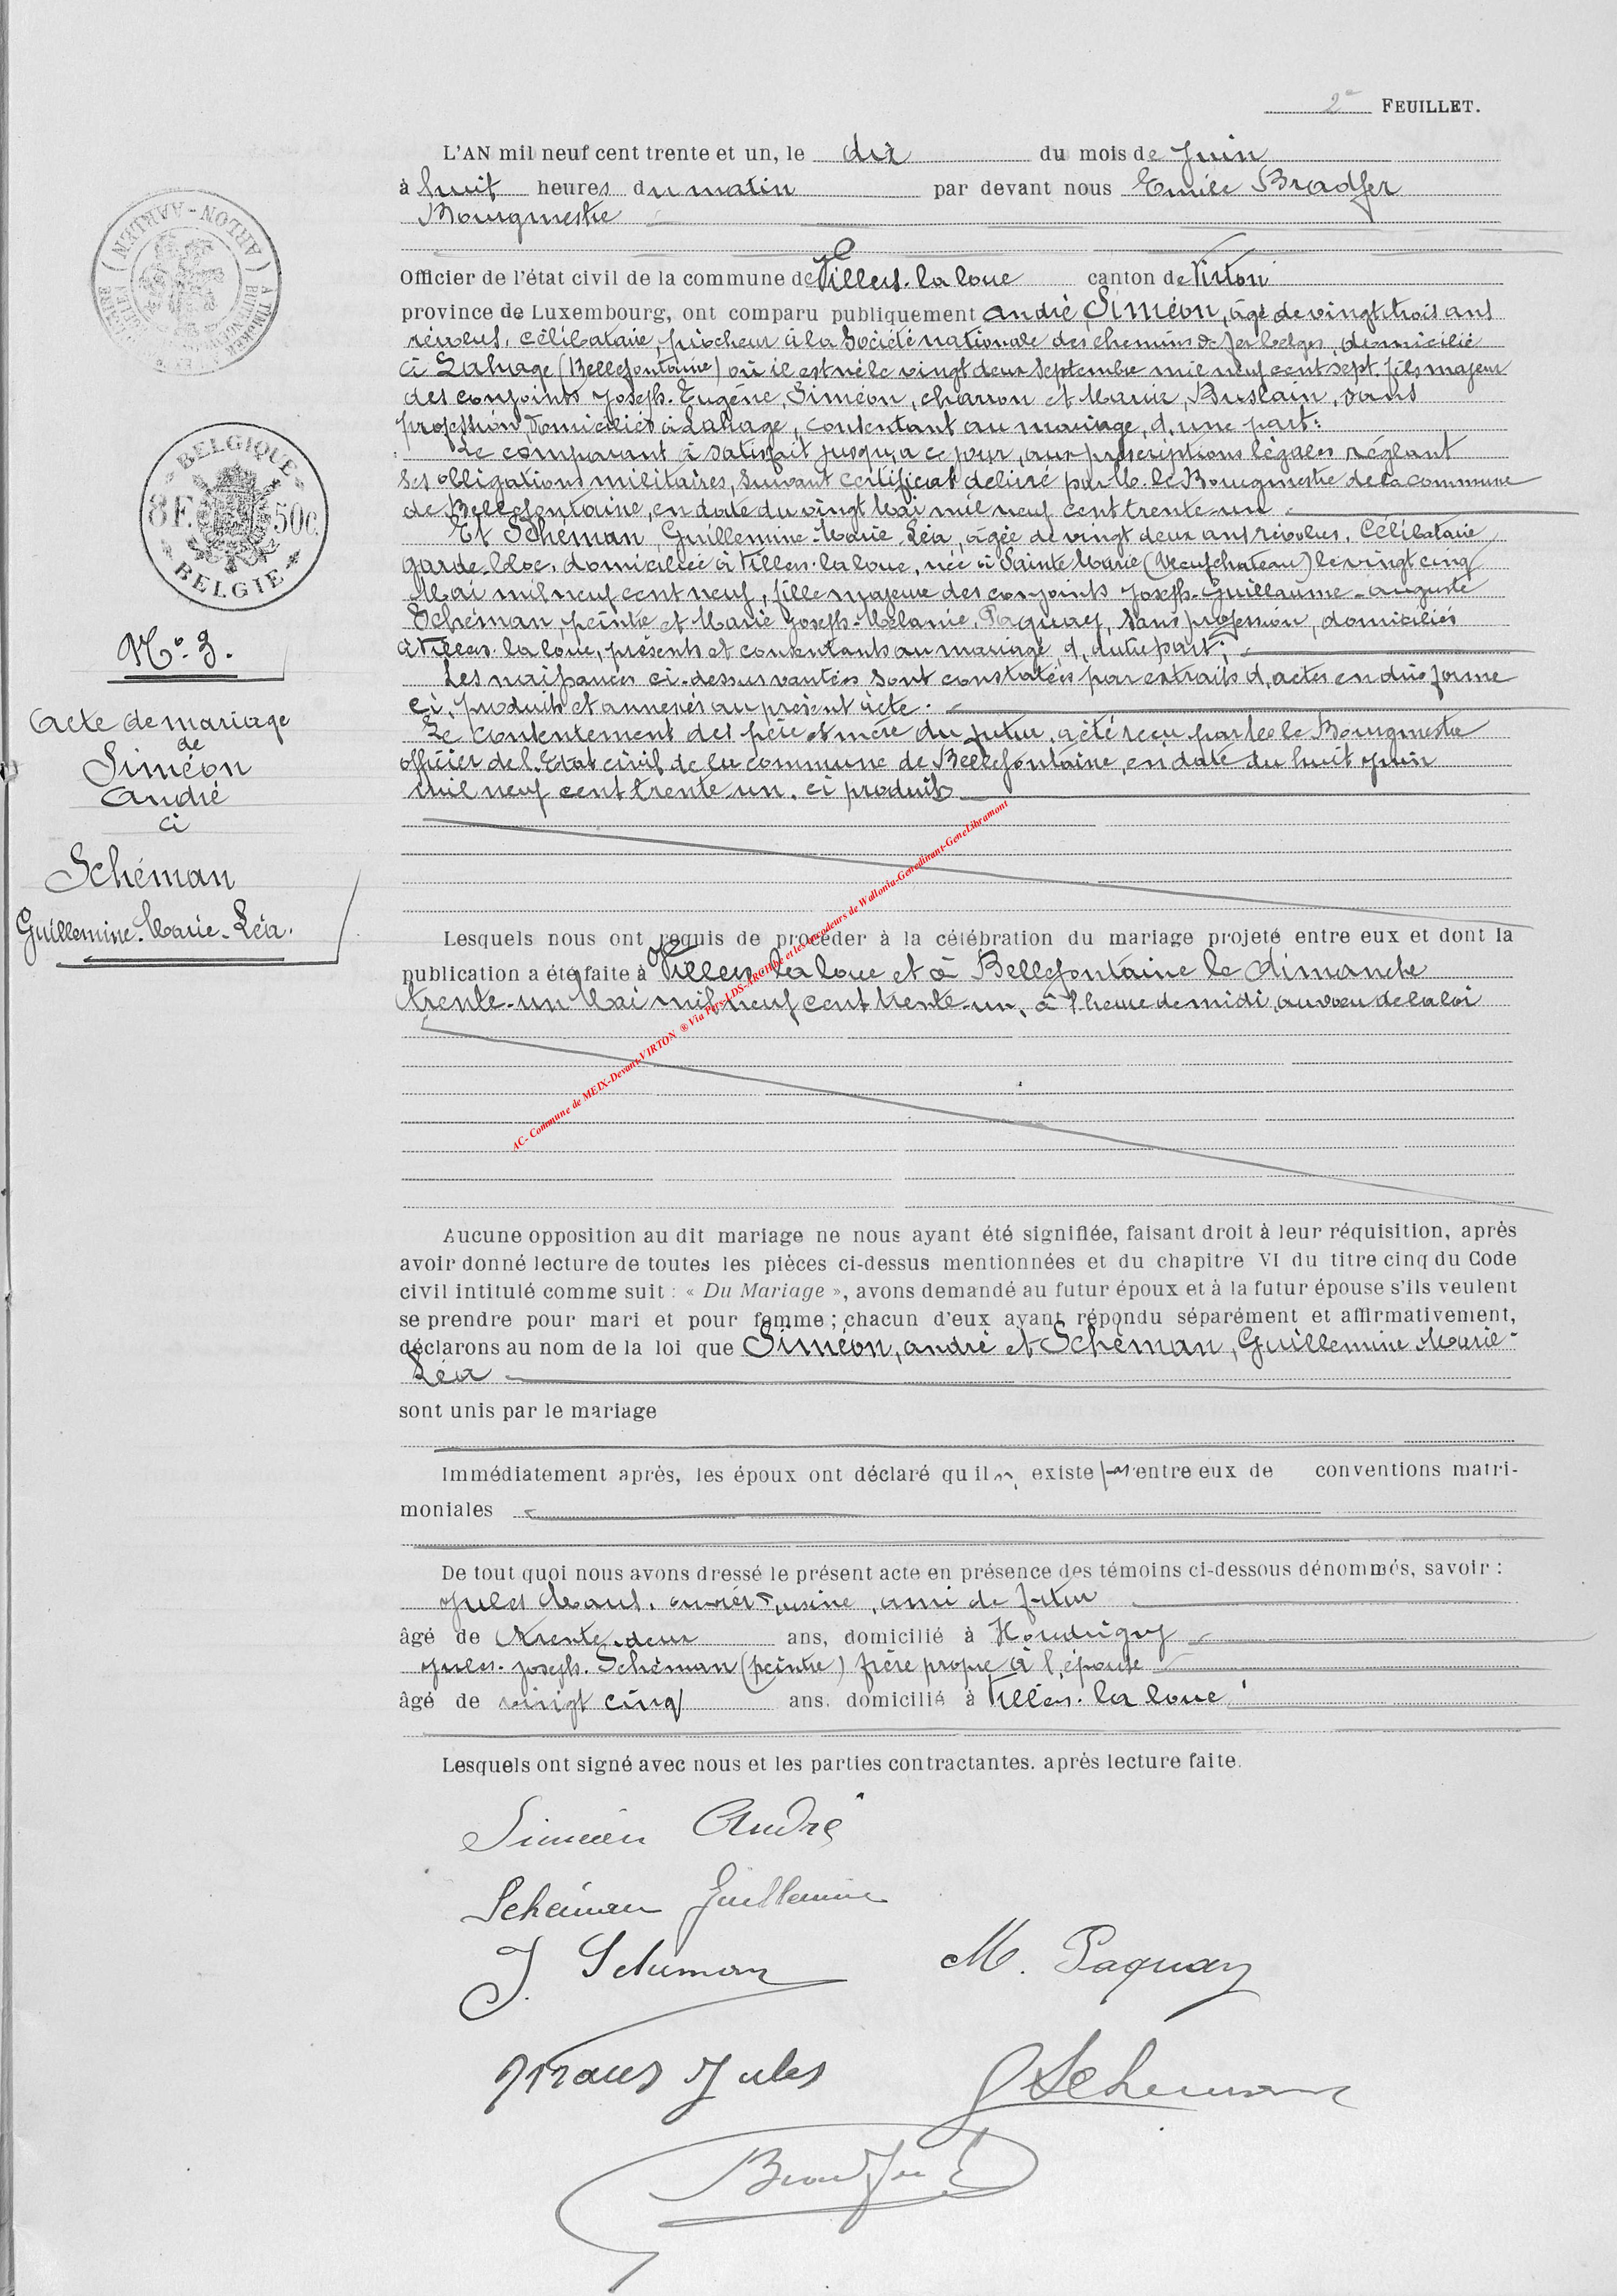 2e FEUILLET.
L'AN mil neuf cent trente et un, le dix du mois de Juin
à huit heures du matin par devant nous Emile Bradfer
Bourgmestre
Officier de l'état civil de la commune de Villers-la loue canton de Virton
province de Luxembourg, ont comparu publiquement André, Siméon, âgé de vingt trois ans
révolus, célibataire, piocheur à la Société nationale des chemins de fer belges, domicilié
à Lahage (Bellefontaine) où il est né le vingt deux Septembre mil neuf cent sept, fils majeur
des conjoints Joseph-Eugène, Siméon, charron et Marie, Buslain, sans
profession, domiciliés à Lahage, consentant au mariage, d'une part:
Le comparant à satisfait jusqu'à ce jour, aux prescriptions légales réglant
ses obligations militaires, suivant certificat délivré par M. le Bourgmestre de la commune
de Bellefontaine, en date du vingt Mai mil neuf cent trente-un
Et Schéman, Guillemine-Marie Léa, âgée de vingt deux ans révolus, Célibataire
garde-bloc, domiciliée à Villers-la loue, née à Sainte Marie (Neufchateau) le vingt cinq
Mai mil neuf cent neuf, fille majeure des conjoints Joseph-Guillaume-Auguste
Schéman, peintre et Marie Joseph-Mélanie, Paquay, sans profession, domiciliés
à Villers-la loue, présents et consentants au mariage, d'autre part;
Les naissances ci-dessus vantées sont constatées par extraits d'actes en due forme
ci, produits et annexés au présent acte.
Le Consentement des père et mère du futur, a été reçu par le Bourgmestre
officier de l'Etat civil de la commune de Bellefontaine, en date du huit Juin
mil neuf cent trente un, ci produit
Lesquels nous ont requis de procéder à la célébration du mariage projeté entre eux et dont la
publication a été faite à Villers la loue et à Bellefontaine le dimanche
trente-un Mai mil neuf cent trente-un, à l'heure de midi, au voeu de la loi
Aucune opposition au dit mariage ne nous ayant été signifiée, faisant droit à leur réquisition, après
avoir donné lecture de toutes les pièces ci-dessus mentionnées et du chapitre VI du titre cinq du Code
civil intitulé comme suit : « Du Mariage », avons demandé au futur époux et à la futur épouse s'ils veulent
se prendre pour mari et pour femme ; chacun d'eux ayant répondu séparément et affirmativement,
déclarons au nom de la loi que Siméon, André et Schéman, Guillemine Marie-
Léa
sont unis par le mariage
Immédiatement après, les époux ont déclaré qu'il n'existe pas entre eux de conventions matri-
moniales
De tout quoi nous avons dressé le présent acte en présence des témoins ci-dessous dénommés, savoir :
Jules Maus, ouvrier d'usine, ami de futur
âgé de trente-deux ans, domicilié à Houdrigny
Jules-Joseph-Schéman (peintre) frère propre à l'épouse
âgé de vingt cinq ans, domicilié à Villers-la loue
Lesquels ont signé avec nous et les parties contractantes, après lecture faite.
Siméon André
Schéman Guillemine
J. Schéman M. Paquay
Maus Jules J Schéman
Bradfer E
ARLON - AARLEN
BELGIQUE
8F. 50c.
BELGIE
No. 3.
Acte de mariage
de
Siméon
André
à
Schéman
Guillemine-Marie-Léa.
AC- Commune de MEIX-Devant-VIRTON ® Via Pers-LDS-ARGH.be et les encodeurs de Wallonia-Genedinant-GeneLibramont